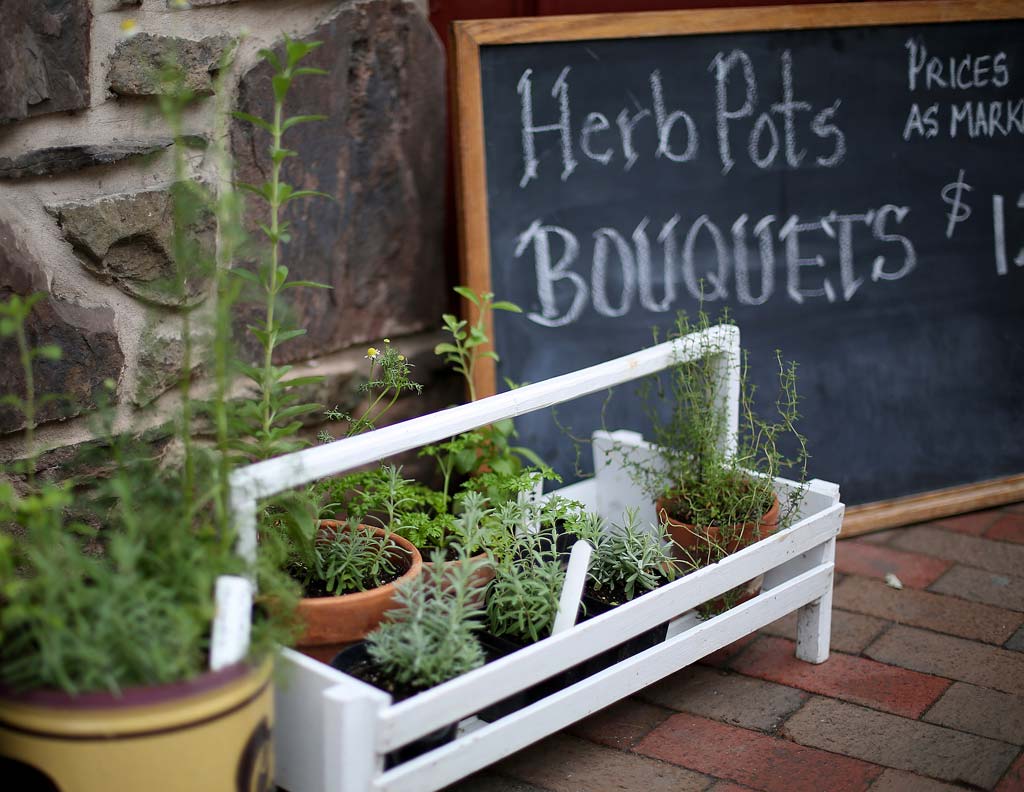 Herb Pots
PRICES
AS MARK
BOUQUETS $ 1